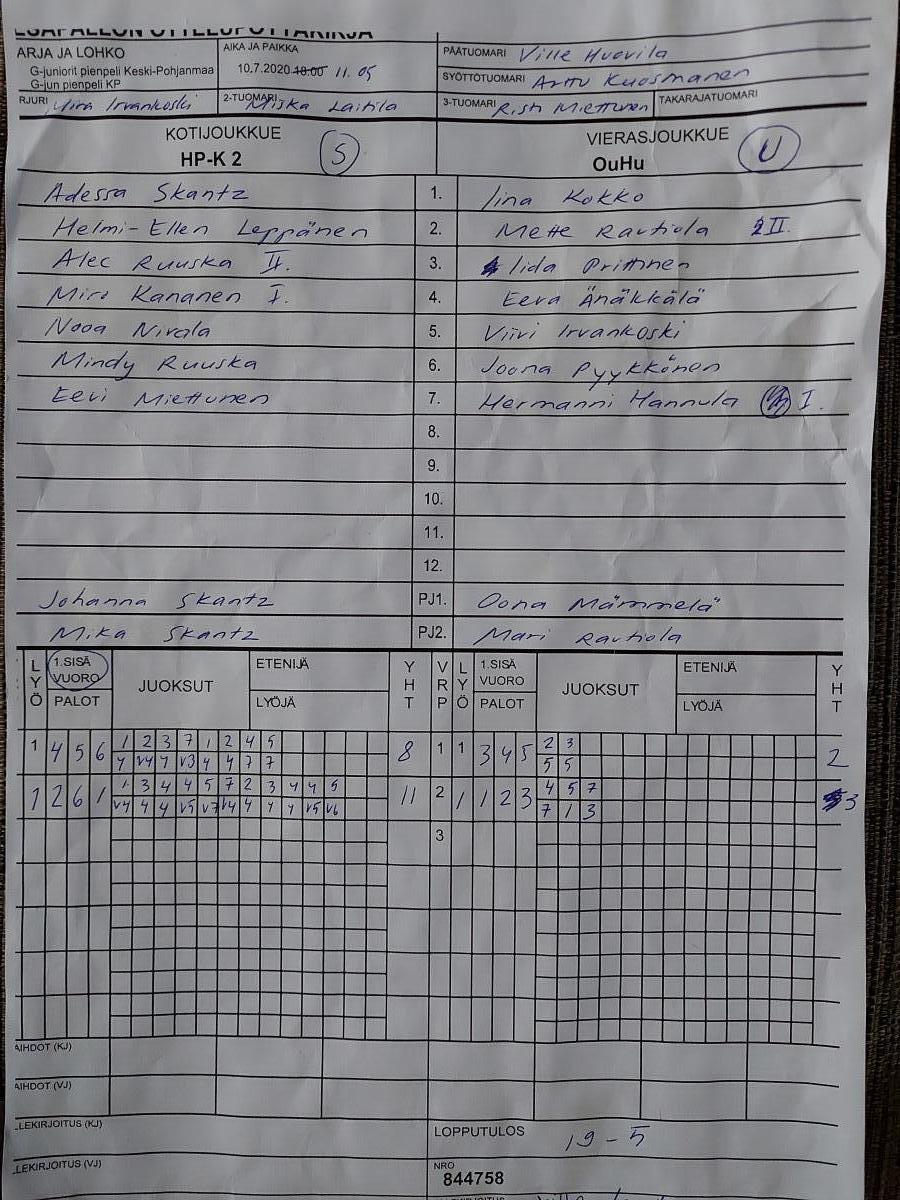 ESÄPALLON OTTELUPÖYTÄKIRJA
ARJA JA LOHKO
G-juniorit pienpeli Keski-Pohjanmaa
G-jun pienpeli KP
AIKA JA PAIKKA
10.7.2020 18:00 11.05
PÄÄTUOMARI Ville Huovila
SYÖTTÖTUOMARI Arttu Kuosmanen
RJURI Irvankoski
2-TUOMARI Miska Laitila
3-TUOMARI Risti Miettunen
TAKARAJATUOMARI
KOTIJOUKKUE
HP-K 2 S
VIERASJOUKKUE
OuHu U
Adessa Skantz 1. Iina Kokko
Helmi-Ellen Leppänen 2. Mette Rautiola II.
Alec Ruuska II. 3. Iida Prittinen
Miro Kananen I. 4. Eeva Änäkkälä
Nooa Nivala 5. Viivi Irvankoski
Mindy Ruuska 6. Joona Pyykkönen
Eevi Miettunen 7. Hermanni Hannula I.
8.
9.
10.
11.
12.
Johanna Skantz PJ1. Oona Mämmelä
Mika Skantz PJ2. Mari Rautiola
LYÖ 1.SISÄ VUORO PALOT JUOKSUT ETENIJÄ LYÖJÄ YHT VRP LYÖ 1.SISÄ VUORO PALOT JUOKSUT ETENIJÄ LYÖJÄ YHT
1 4 5 6 1 2 3 7 1 2 4 5 8 1 1 3 4 5 2 3 2
4 v4 4 v3 4 4 7 7 5 5
1 2 6 1 1 3 4 4 5 7 2 3 4 4 5 11 2 1 1 2 3 4 5 7 3
v4 4 4 v5 v7 v4 4 4 4 v5 v6 7 1 3
3
AIHDOT (KJ)
AIHDOT (VJ)
LEKIRJOITUS (KJ)
LOPPUTULOS 19 - 5
LEKIRJOITUS (VJ)
NRO
844758